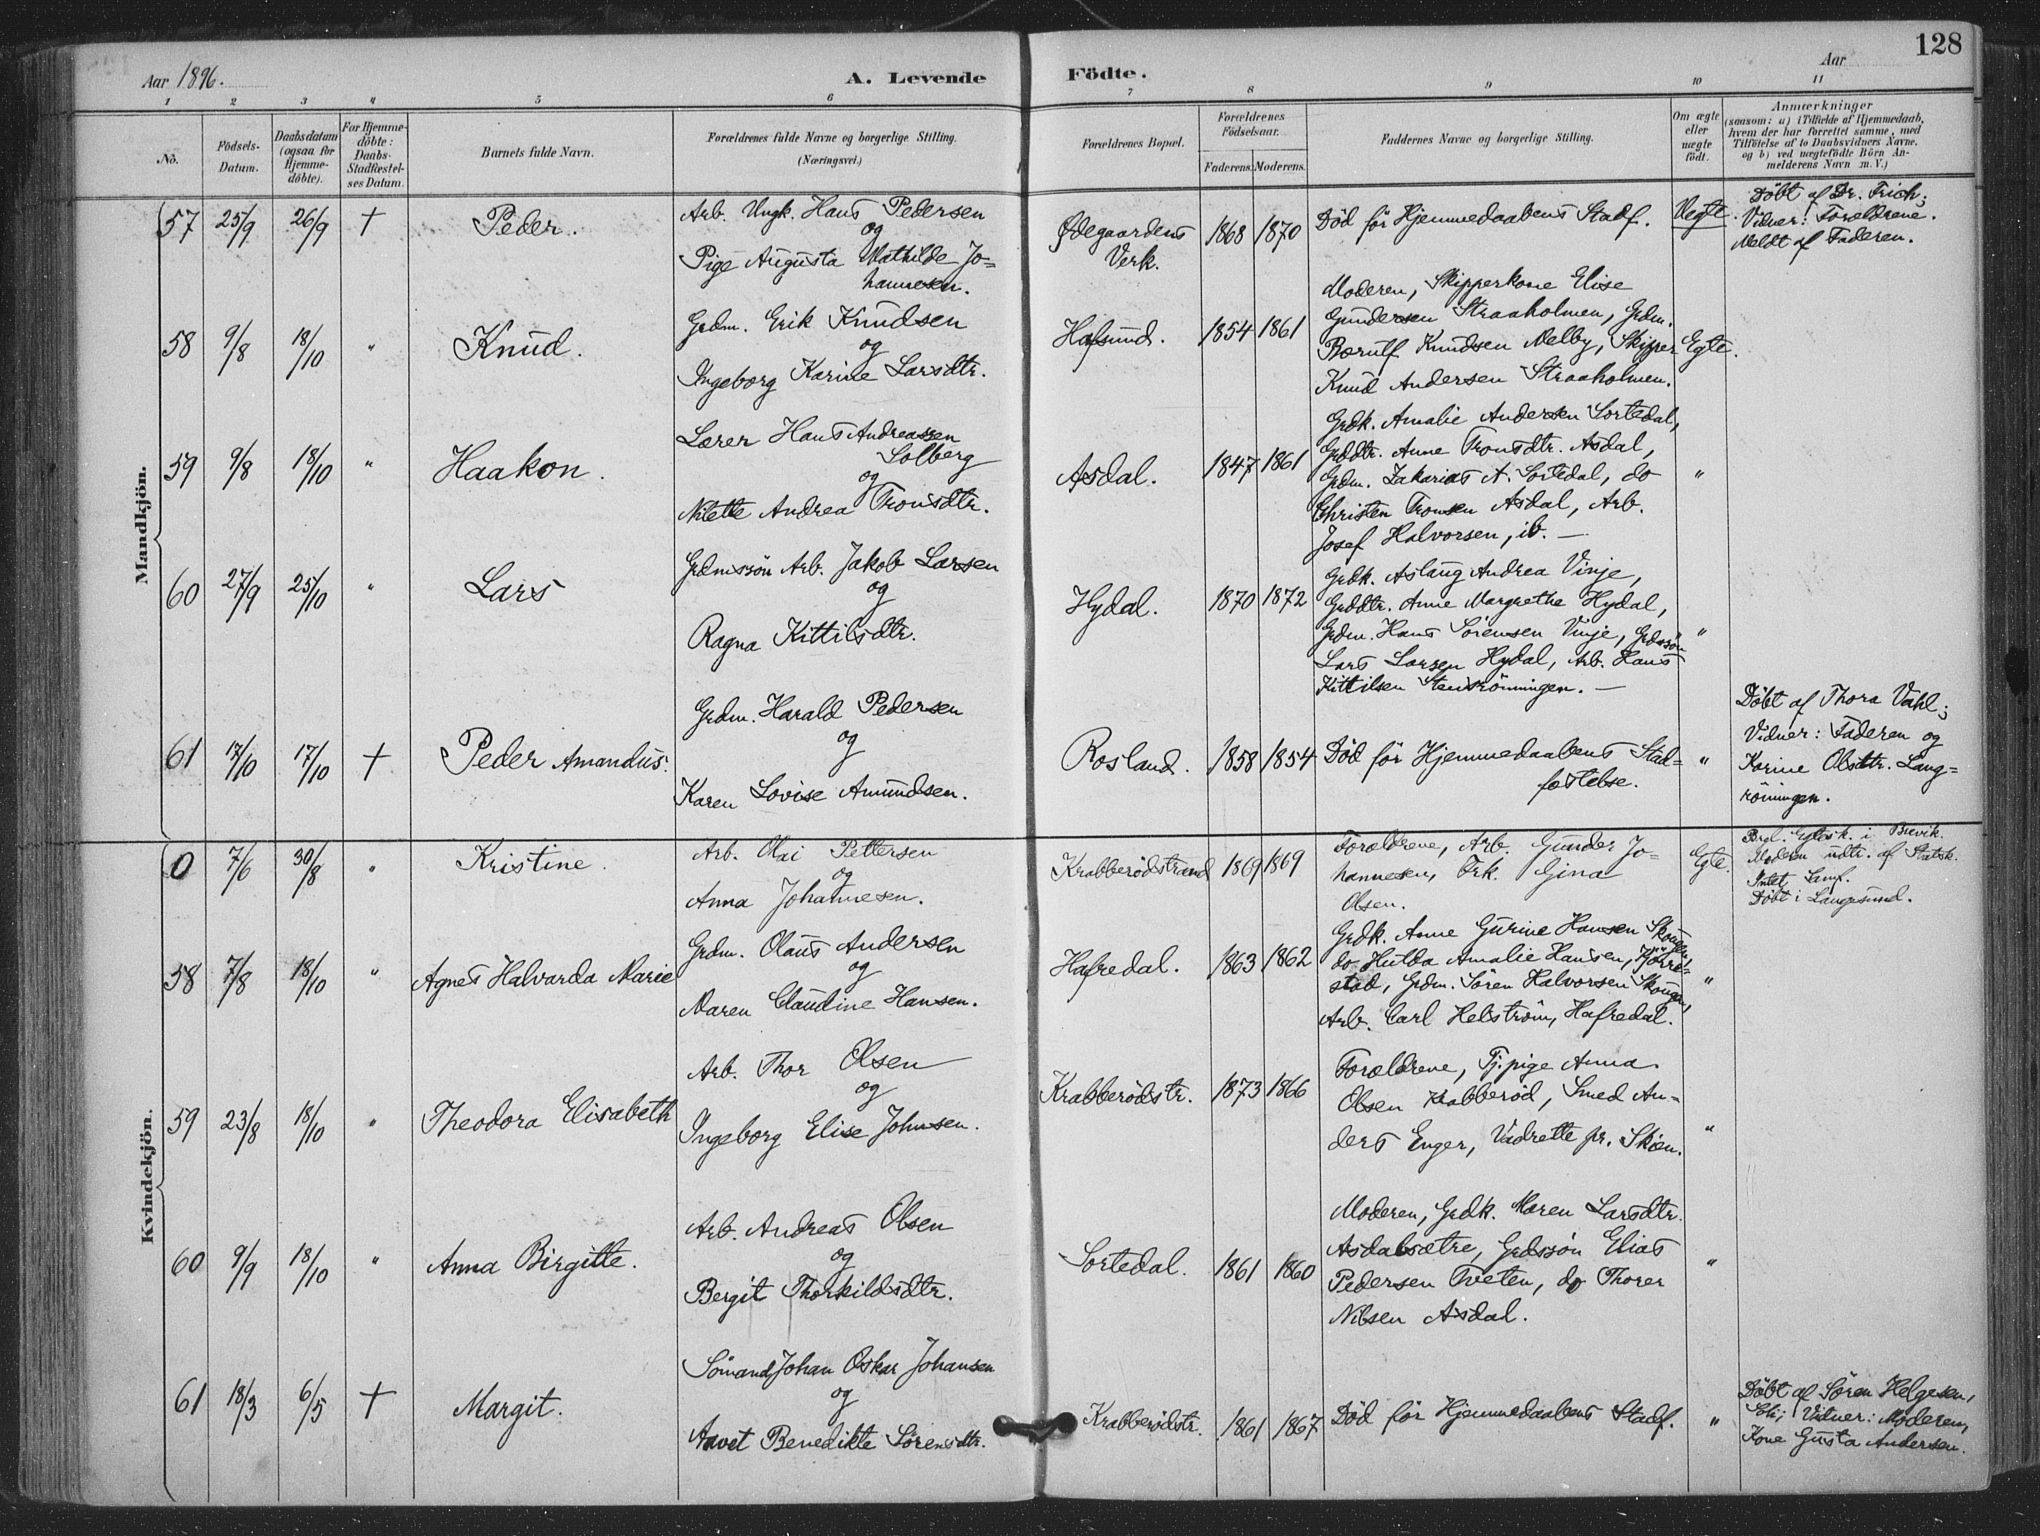 128
Aar 1896.
A. Levende Födte.
Aar
1 2 3 4 5 6 7 8 9 10 11
No.
Födsels-Datum.
Daabsdatum (ogsaa for Hjemme-döbte).
For Hjemme-döbte: Daabs-Stadfæstel-ses Datum.
Barnets fulde Navn.
Forældrenes fulde Navne og borgerlige Stilling. (Næringsvei.)
Forældrenes Bopæl.
Forældrenes Födselsaar.
Faderens. Moderens.
Faddernes Navne og borgerlige Stilling.
Om ægte eller uægte födt.
Anmærkninger
(saasom: a) i Tilfælde af Hjemmedaab, hvem der har forrettet samme, med Tilföielse af to Daabsvidners Navne. og b) ved uægtefödte Börn An-melderens Navn m. V.)
Mandkjön.
57 25/9 26/9 † Peder.
Arb. Ungk. Hans Pedersen
og
Pige Augusta Mathilde Jo=
hannesen.
Ødegaardens
Verk.
1868 1870
Död før Hjemmedaabens Stadf.
Uegte.
Döbt af Dr. Frich;
Vidner: Forældrene.
Meldt af Faderen.
58 9/8 18/10 " Knud.
Grdm. Erik Knudsen
og
Ingeborg Karine Larsdtr.
Hafsund. 1854 1861
Moderen, Skipperkone Elise
Gundersen Straaholmen, Grdm.
Bærulf Knudsen Melby, Skipper
Knud Andersen Straaholmen.
Egte.
59 9/8 18/10 " Haakon.
Lærer Hans Andreassen
Solberg
og
Nilette Andrea Tronsdtr.
Asdal. 1847 1861
Grdk. Amalie Andersen Sortedal,
Grddtr. Anne Tronsdtr. Asdal,
Grdm. Zakarias A. Sortedal, do
Christen Tronsen Asdal, Arb.
Josef Halvorsen, ib. —
"
60 27/9 25/10 " Lars
Grdmssön Arb. Jakob Larsen
og
Ragna Kittilsdtr.
Hydal. 1870 1872
Grdk. Aslaug Andrea Vinje,
Grddtr. Anne Margrethe Hydal,
Grdm. Hans Sörensen Vinje, Grdssön
Lars Larsen Hydal, Arb. Hans
Kittilsen Stensrönningen. —
"
61 17/10 17/10 † Peder Amandus.
Grdm. Harald Pedersen
og
Karen Lovise Amundsen.
Rosland. 1858 1854
Död för Hjemmedaabens Stad=
fæstelse.
"
Döbt af Thora Vahl;
Vidner: Faderen og
Karine Olsdtr. Lang=
rönningen.
Kvindekjön.
0 7/6 30/8 " Kristine.
Arb. Olai Pettersen
og
Anna Johannesen.
Krabberödstrand 1869 1869
Forældrene, Arb. Gunder Jo=
hannesen, Frk. Gina
Olsen.
Egte.
Brgl. Egtesk. i Brevik.
Moderen udtr. af Statsk.
Intet Samf.
Döbt i Langesund.
58 7/8 18/10 " Agnes Halvarda Marie
Grdm. Olaus Andersen
og
Maren Claudine Hansen.
Hafredal. 1863 1862
Grdk. Anne Gurine Hansen Skougen,
do Hulda Amalie Hansen, Tjörre=
stad, Grdm. Sören Halvorsen Skougen,
Arb. Carl Helström, Hafredal.
"
59 23/8 18/10 " Theodora Elisabeth
Arb. Thor Olsen
og
Ingeborg Elise Johnsen.
Krabberödstr. 1873 1866
Forældrene, Tj.pige Anna
Olsen Krabberöd, Smed An=
ders Enger, Vadrette pr. Skien.
"
60 9/9 18/10 " Anna Birgitte.
Arb. Andreas Olsen
og
Bergit Thorkildsdtr.
Sortedal. 1861 1860
Moderen, Grdk. Maren Larsdtr.
Asdalsætre, Grdssön Elias
Pedersen Tveten, do Thorer
Nilsen Asdal.
"
61 18/3 6/5 † Margit.
Sömand Johan Oskar Johansen
og
Anvet Benedikte Sörensdtr.
Krabberödstr. 1861 1867
Död för Hjemmedaabens Stadf.
"
Döbt af Sören Helgesen,
Vidner: Moderen,
Kone Gusta Andersen.